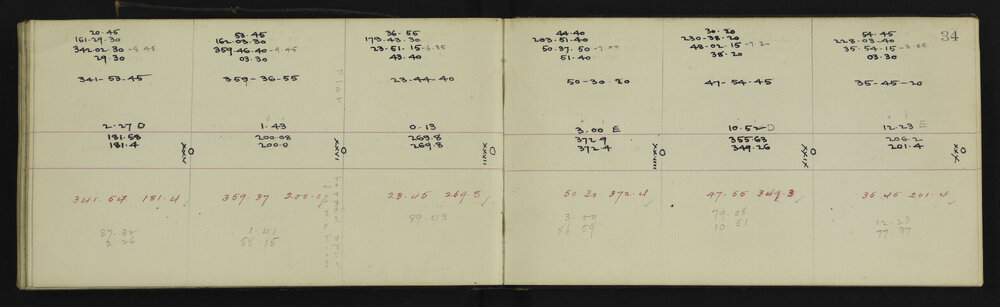 34
20.45
161.29.30
342.02.30 -8.45
29.30
341-53-45
2.27 D
181.58
181.4
341.54 181.4
87.32
2.26
53.45
162.03.30
359.46.40 -9.45
03.30
359-36-55
1.43
200.08
200.0
XXVI
359 37 200.0
1.41
88-15
36.55
173.43.30
23.51.15 -6.35
43.40
23-44-40
0.13
269.8
269.8
XXVII
23.45 269.8
89.45
44.40
203.51.40
50.37.50 -7.00
51.40
50-30 20
3.00 E
372.9
372.4
XXVIII
50.30 372.4
3.00
86 59
30.20
230.38.20
48.02.15 -7.30
38.20
47-54-45
10.52 D
355.63
349.26
XXIX
47.55 349.3
79.08
10.51
54.45
228.03.40
35.54.15 -8.55
03.30
35-45-20
12-23 E
206.2
201.4
XXX
35.45 201.4
12-23
77.37